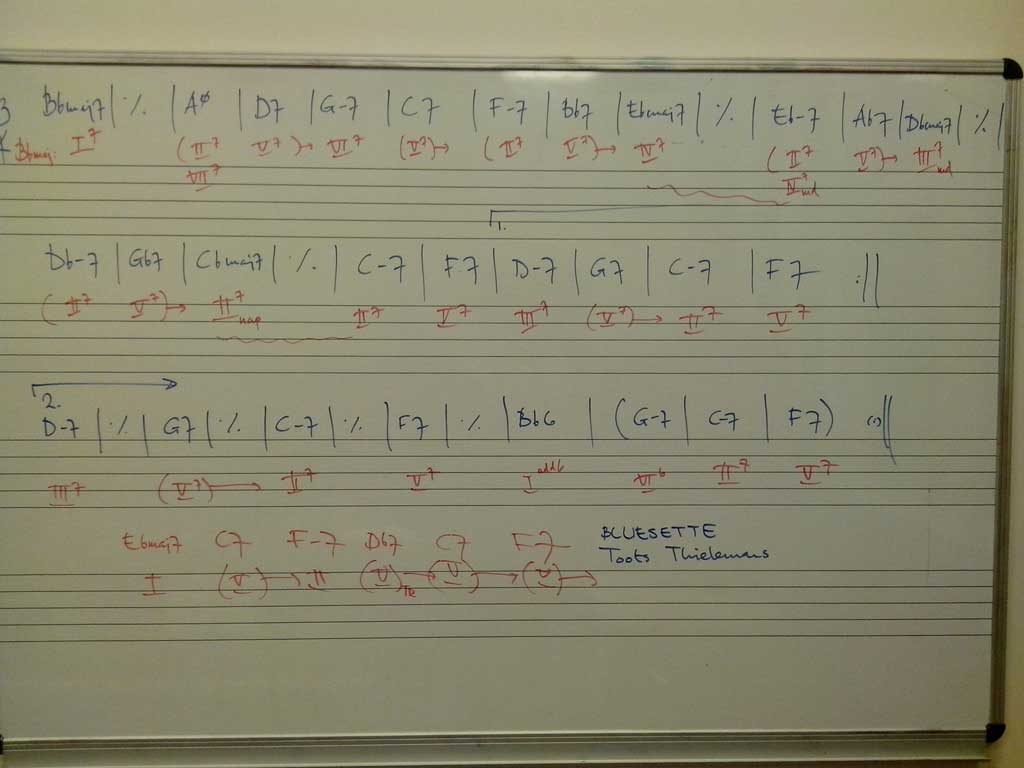 3 Bbmaj7 | ٪. | Aø | D7 | G-7 | C7 | F-7 | Bb7 | Ebmaj7 | ٪. | Eb-7 | Ab7 | Dbmaj7 | ٪. |
4 Bbmaj: I7 (II7 V7)→ VI7 (V7)→ (II7 V7)→ IV7 (II7 V7)→ IIImd
VII7 IV7md
1.
Db-7 | Gb7 | Cbmaj7 | ٪. | C-7 | F7 | D-7 | G7 | C-7 | F7 :||
(II7 V7)→ II7nap II7 V7 III7 (V7)→ II7 V7
2.
D-7 | ٪. | G7 | ٪. | C-7 | ٪. | F7 | ٪. | Bb6 | (G-7 | C-7 | F7) (:)||
III7 (V7)→ II7 V7 Iadd6 VI6 II7 V7
Ebmaj7 C7 F-7 Db7 C7 F7 BLUESETTE
I (V)→ II (V)TR→ (V)→ (V)→ Toots Thielemans